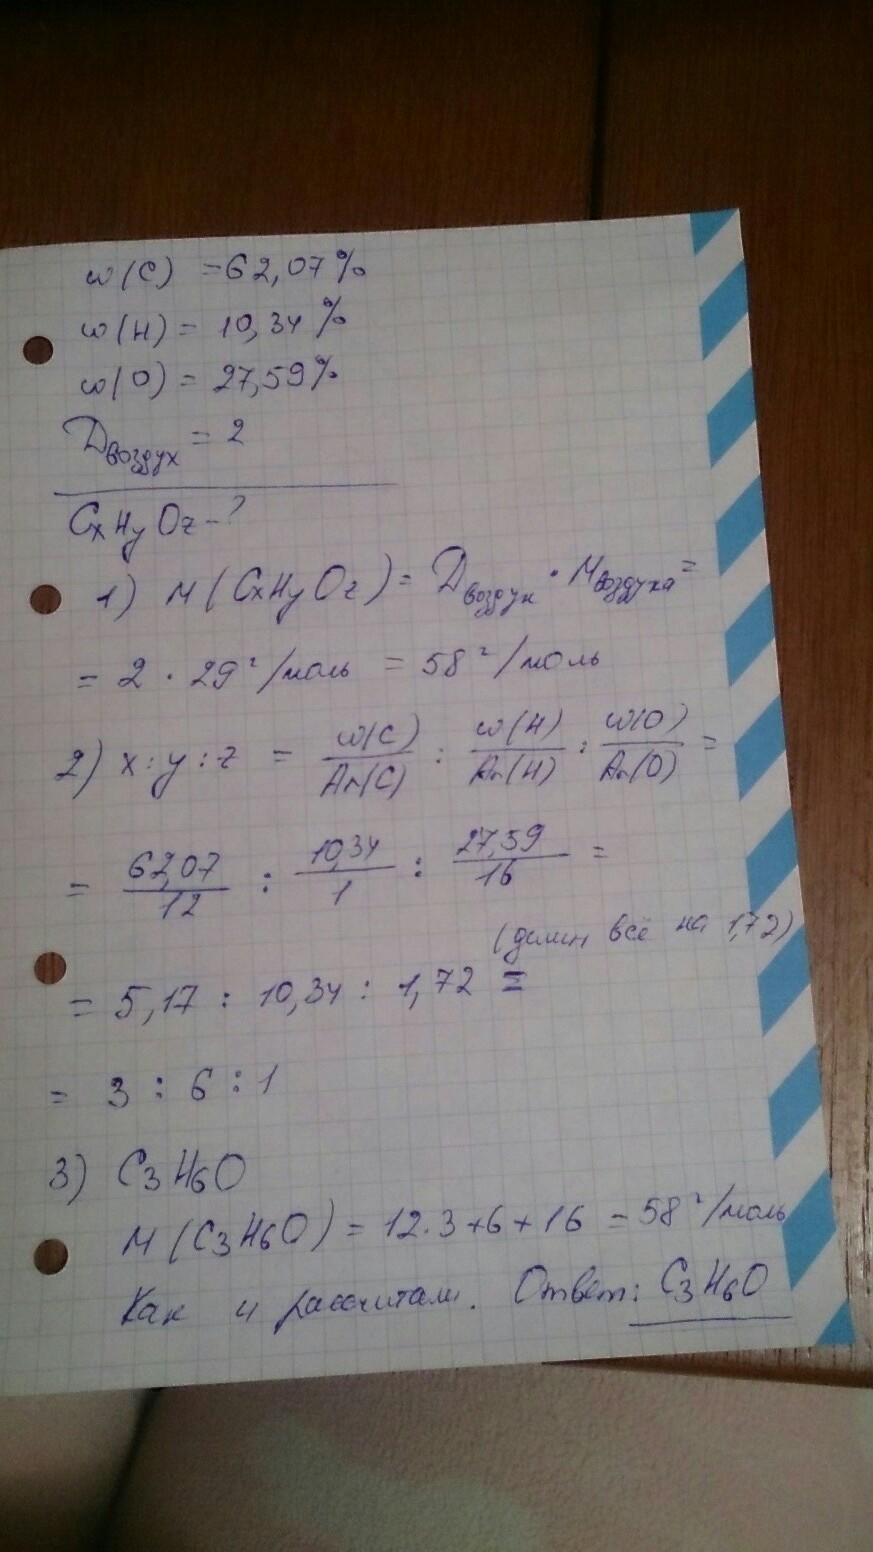 w(C) = 62,07%
w(H) = 10,34%
w(O) = 27,59%
Dвоздух = 2
CxHyOz - ?
1) M(CxHyOz) = Dвоздух · Mвоздуха =
= 2 · 29 г/моль = 58 г/моль
2) x : y : z = w(C)/Ar(C) : w(H)/Ar(H) : w(O)/Ar(O) =
= 62,07/12 : 10,34/1 : 27,59/16 =
(делим всё на 1,72)
= 5,17 : 10,34 : 1,72 =
= 3 : 6 : 1
3) C3H6O
M(C3H6O) = 12·3+6+16 = 58 г/моль
Как и рассчитали. Ответ: C3H6O